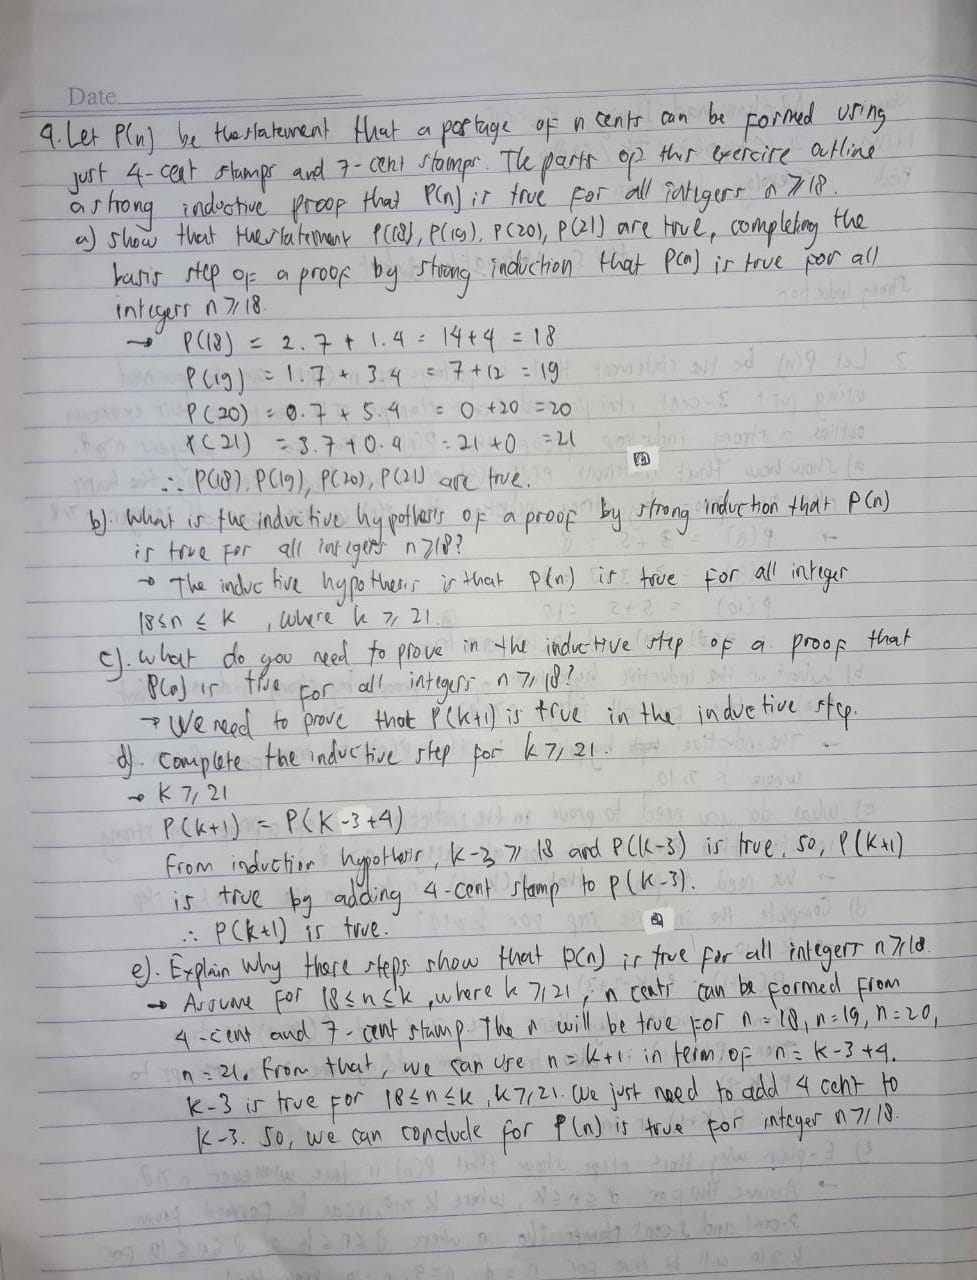 Date
4. Let P(n) be the statement that a postage of n cents can be formed using
just 4-cent stamps and 7-cent stamps. The parts of this exercise outline
a strong inductive proof that P(n) is true for all integers n ⩾ 18.
a) show that the statement P(18), P(19), P(20), P(21) are true, completing the
basis step of a proof by strong induction that P(n) is true for all
integers n ⩾ 18.
→ P(18) = 2.7 + 1.4 = 14+4 = 18
P(19) = 1.7 + 3.4 = 7+12 = 19
P(20) = 0.7 + 5.4 = 0 +20 = 20
P(21) = 3.7 + 0.4 = 21+0 = 21
∴ P(18), P(19), P(20), P(21) are true.
b). What is the inductive hypothesis of a proof by strong induction that P(n)
is true for all integers n ⩾ 18?
→ The inductive hypothesis is that P(n) is true for all integer
18 ≤ n ≤ k , where k ⩾ 21.
c). what do you need to prove in the inductive step of a proof that
P(n) is true for all integers n ⩾ 18?
→ We need to prove that P(k+1) is true in the inductive step.
d). Complete the inductive step for k ⩾ 21.
→ K ⩾ 21
P(k+1) = P(K-3+4)
From induction hypothesis, k-3 ⩾ 18 and P(k-3) is true, so, P(k+1)
is true by adding 4-cent stamp to P(k-3).
∴ P(k+1) is true.
e). Explain why these steps show that P(n) is true for all integers n ⩾ 18.
→ Assume for 18 ≤ n ≤ k , where k ⩾ 21, n cents can be formed from
4-cent and 7-cent stamp. The n will be true for n=18, n=19, n=20,
n=21. From that, we can use n=k+1 in term of n= k-3+4.
k-3 is true for 18 ≤ n ≤ k, k ⩾ 21. We just need to add 4 cent to
k-3. So, we can conclude for P(n) is true for integer n ⩾ 18.